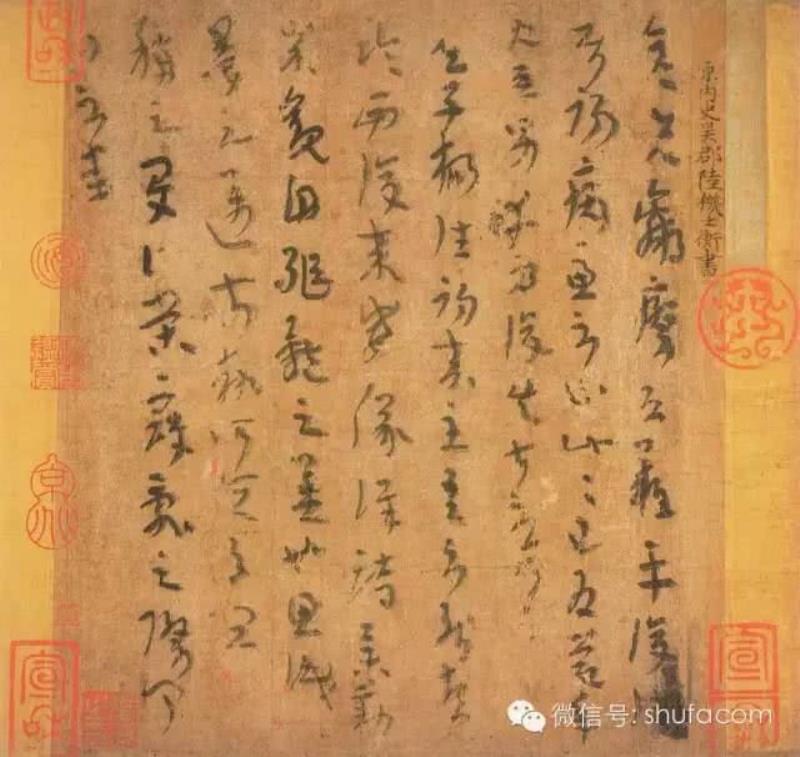 原內史吳郡陸機士衡書
彦先羸瘵恐難平復往屬
初病慮不止此此已為慶承
使唯男幸為復失前憂耳
吳子楊往初來主吾不能盡
臨西復來威儀詳跱舉動
成觀自軀體之美也思識
量之邁前執勢所恒有宜
稱之夏伯榮寇亂之際聞
問不悉
宣和
宣和
微信号: shufacom